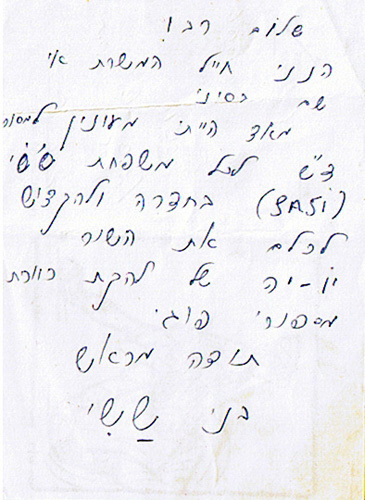 שלום רב!
הנני חייל המשרת אי
שם בסיני
מאד הייתי מעונין למסור
ד"ש לכל משפחת שׁשׁי
(SASI) בחדרה ולהקדיש
לכלם את השיר
יו-יה של להקת כוורת
מספורי פוגי
תודה מראש
בני שַׁשִׁי